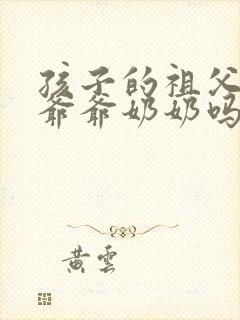 孩子的祖父
爷爷奶奶吗
黄雲